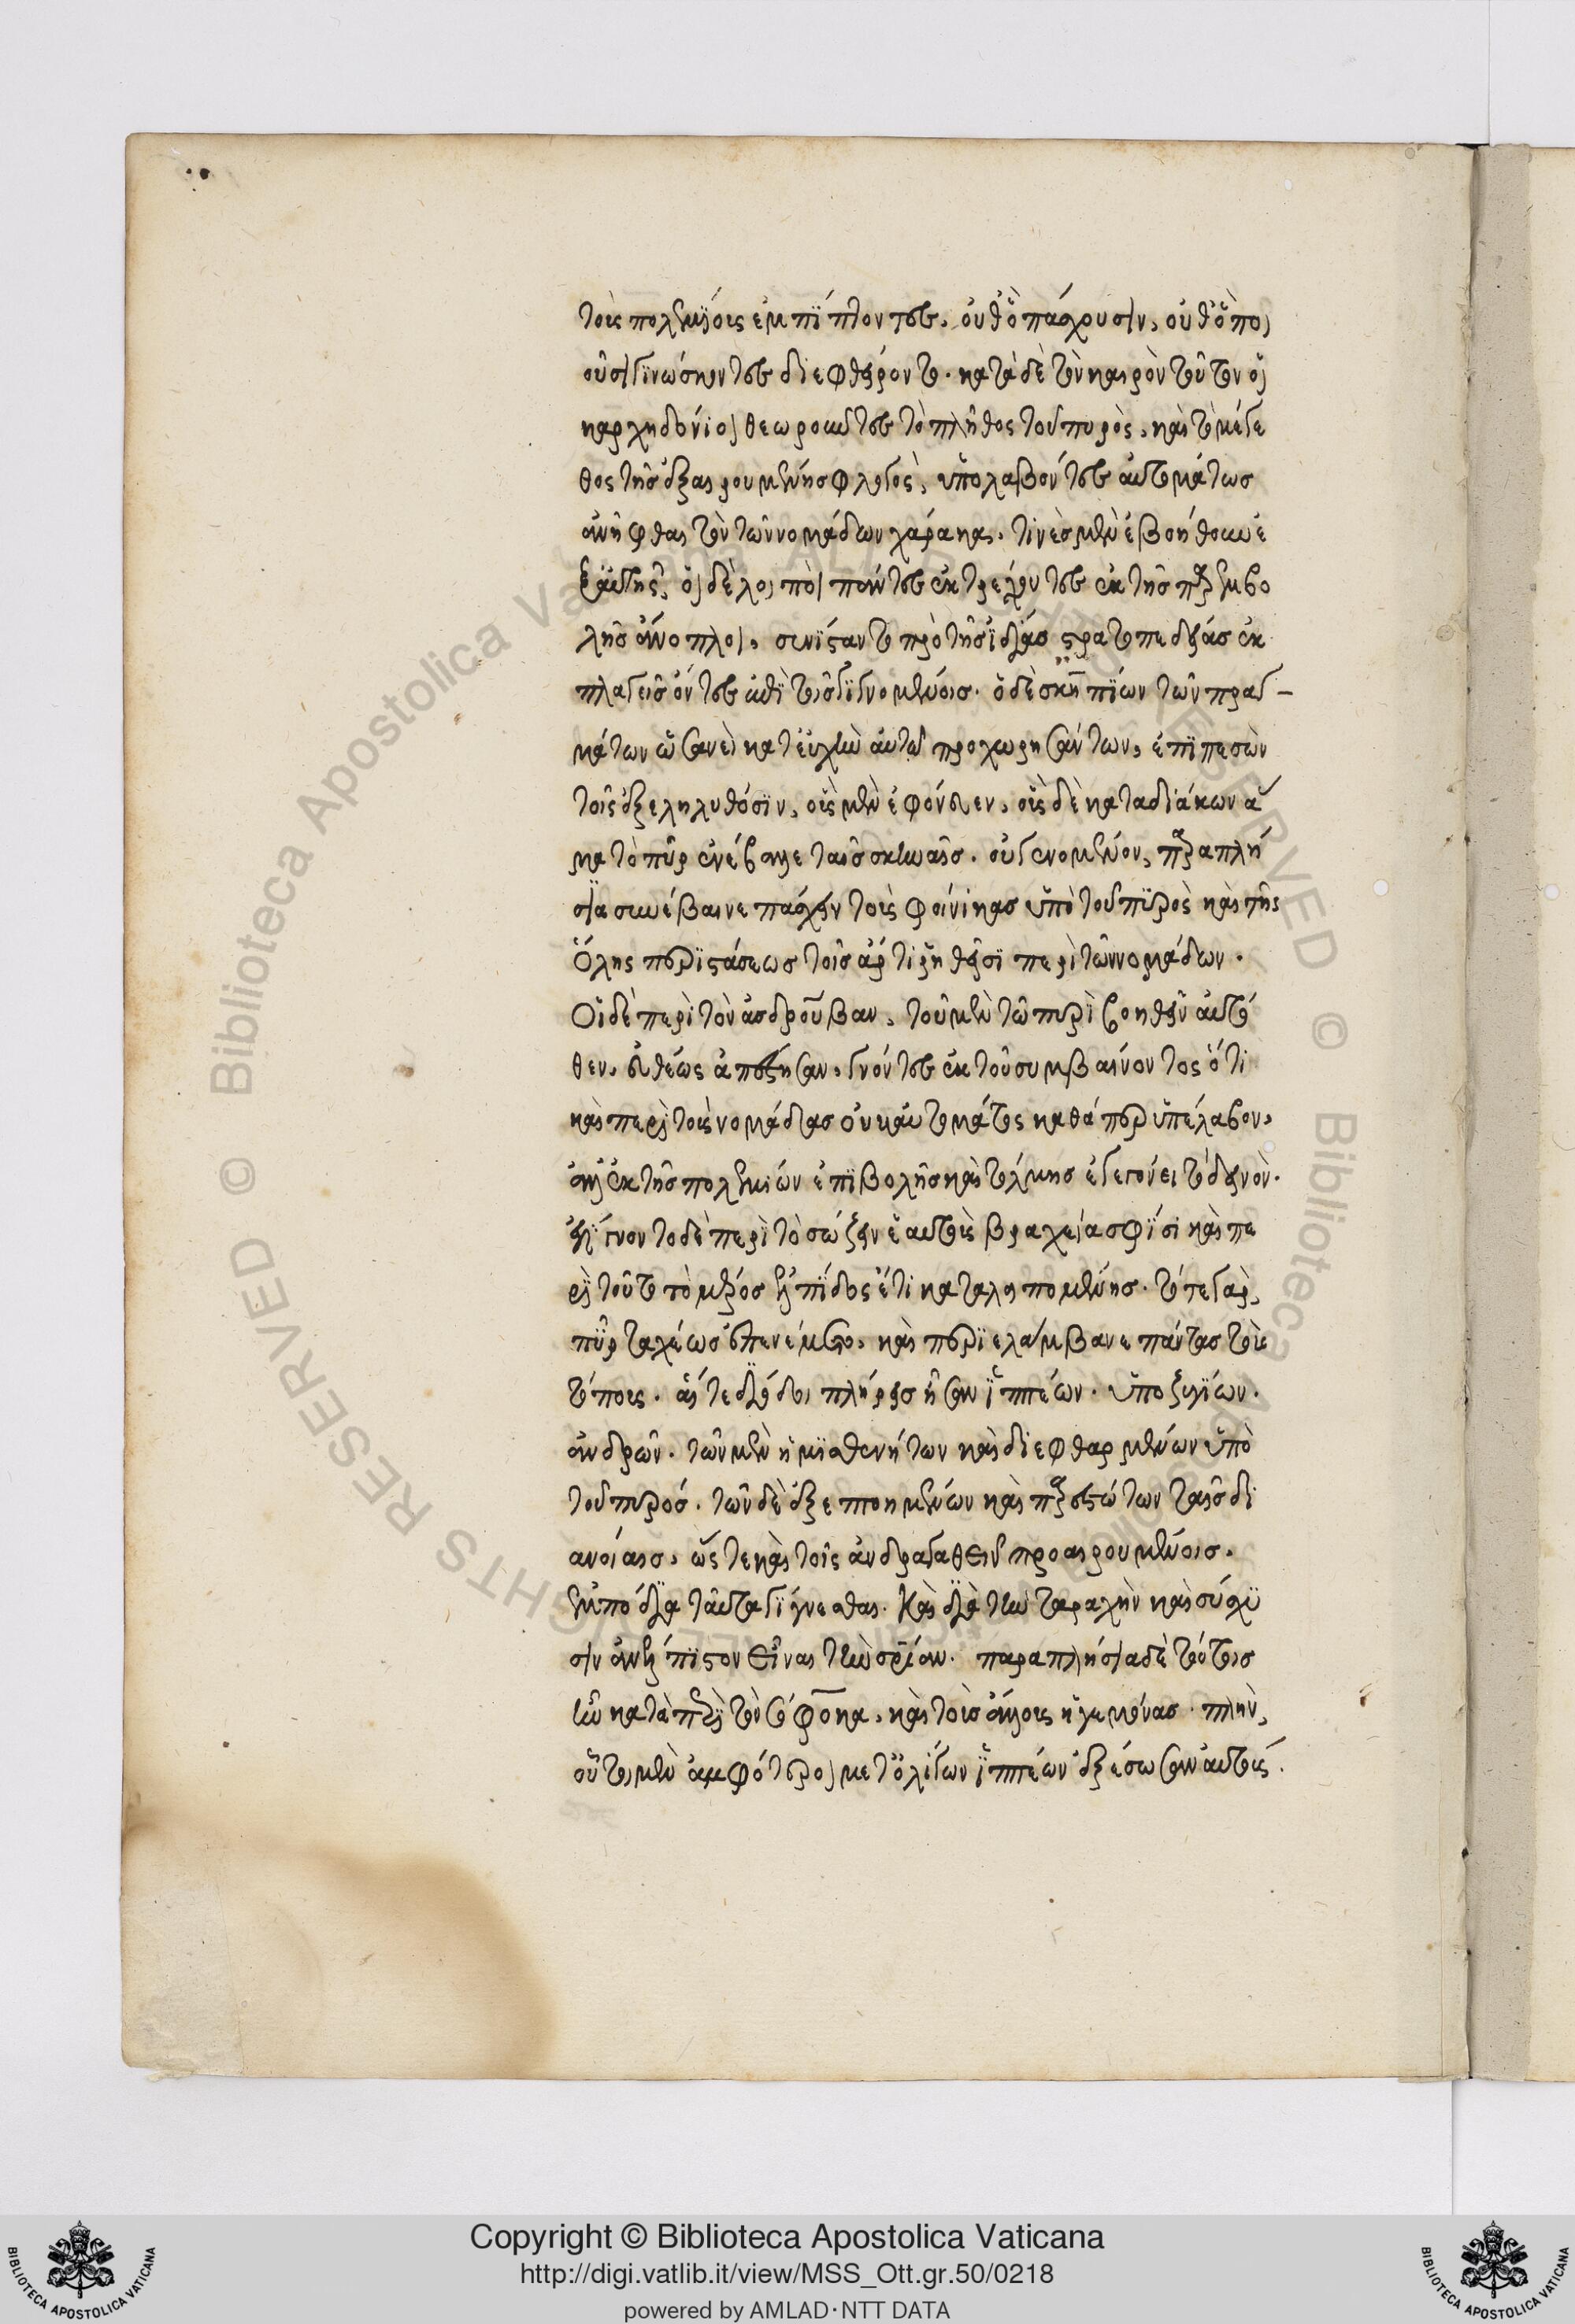 τοὺς πολεμίους ἐμπίπτοντες, οὐθ' ὃ πάσχουσιν, οὐθ' ὃ ποι
οῦσι γινώσκοντες διεφθείροντο. κατὰ δὲ τὸν καιρὸν τοῦτον οἱ
καρχηδόνιοι θεωροῦντες τὸ πλῆθος τοῦ πυρὸς, καὶ τὸ μέγε
θος τῆς ἐξαιρουμένης φλογὸς, ὑπολαβόντες αὐτομάτως
ἀνῆφθαι τὸν τῶν νομάδων χάρακα, τινὲς μὲν ἐβοήθουν ἐ
ξαὐτῆς, οἱ δὲ λοιποὶ πάντες ἐκτρέχοντες ἐκ τῆς παρεμβο
λῆς ἄνοπλοι, συνίσταντο πρὸ τῆς ἰδίας στρατοπεδείας ἐκ
πλαγεῖς ὄντες ἐπὶ τοῖς γιγνομένοις. ὁ δὲ σκηπίων τῶν πραγ-
μάτων ὡσανεὶ κατ' εὐχὴν αὐτῷ προχωρησάντων, ἐπιπεσὼν
τοῖς ἐξεληλυθόσιν, οὓς μὲν ἐφόνευεν, οὓς δὲ καταδιώκων ἅ
μα τὸ πῦρ ἐνέβαλλε ταῖς σκηναῖς. οὗ γενομένου, παραπλή
σια συνέβαινε πάσχειν τοὺς φοίνικας ὑπὸ τοῦ πυρὸς καὶ τῆς
ὅλης περιστάσεως τοῖς ἄρτι ῥηθεῖσι περὶ τῶν νομάδων.
Οἱ δὲ περὶ τὸν ἀσδρούβαν, τοῦ μὲν τῷ πυρὶ βοηθεῖν αὐτό
θεν, εὐθέως ἀπέστησαν, γνόντες ἐκ τοῦ συμβαίνοντος ὅτι
καὶ περὶ τοὺς νομάδας οὐκ αὐτομάτως καθάπερ ὑπέλαβον,
ἀλλ' ἐκ τῆς πολεμίων ἐπιβολῆς καὶ τόλμης ἐγεγόνει τὸ δεινόν.
ἐγίγνοντο δὲ περὶ τὸ σώζειν ἑαυτοὺς βραχείας φίσι καὶ πε
ρὶ τοῦτο τὸ μέρος ἐλπίδος ἔτι καταλειπομένης. τό τε γὰρ,
πῦρ ταχέως ἐπενέμετο, καὶ περιελάμβανε πάντας τοὺς
τόπους. αἵ τε δίοδοι πλήρεις ἦσαν ἱππέων. ὑποζυγίων.
ἀνδρῶν. τῶν μὲν ἡμιθνήτων καὶ διεφθαρμένων ὑπὸ
τοῦ πυρός. τῶν δὲ ἐξεπτοημένων καὶ παρεστώτων ταῖς δι
ανοίαις, ὥστε καὶ τοῖς ἀνδραγαθεῖν προαιρουμένοις,
ἐμπόδια ταῦτα γίγνεσθαι. Καὶ διὰ τὴν ταραχὴν καὶ σύγχυ
σιν ἀνέλπιστον εἶναι τὴν σρίαν. παραπλήσια δὲ τούτοις
ἦν κατὰ περὶ τὸν σόφοκα, καὶ τοὺς ἄλλους ἡγεμόνας. πλὴν,
οὗτοι μὲν ἀμφότεροι μετ' ὀλίγων ἱππέων ἐξέσωσαν αὑτούς.
Copyright © Biblioteca Apostolica Vaticana
http://digi.vatlib.it/view/MSS_Ott.gr.50/0218
powered by AMLAD·NTT DATA